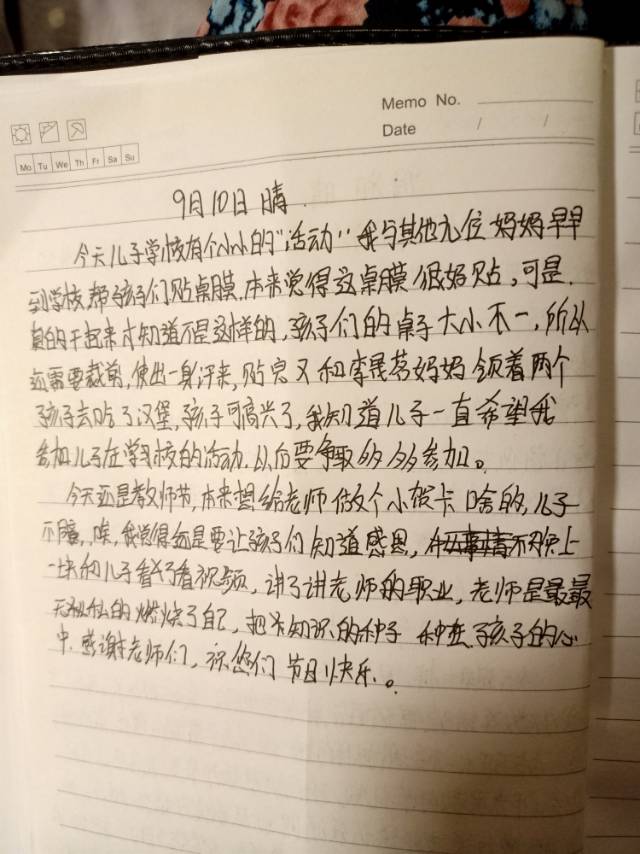 Memo No.
Date / /
Mo Tu We Th Fr Sa Su
9月10日 晴
今天儿子学校有个小小的"活动"我与其他九位妈妈早早
到学校帮孩子们贴桌膜.本来觉得这桌膜很好贴,可是.
真的干起来才知道不是这样的,孩子们的桌子大小不一,所以
还需要裁剪,使出一身汗来,贴完又和李晟茗妈妈领着两个
孩子去吃了汉堡,孩子可高兴了,我知道儿子一直希望我
参加儿子在学校的活动.以后要争取多多参加。
今天还是教师节,本来想给老师做个小贺卡啥的,儿子
不愿,唉,我觉得还是要让孩子们知道感恩,不晚上
一块和儿子看了看视频,讲了讲老师的职业,老师是最最
无私的燃烧了自己,把知识的种子种在孩子的心
中.感谢老师们,祝您们节日快乐。